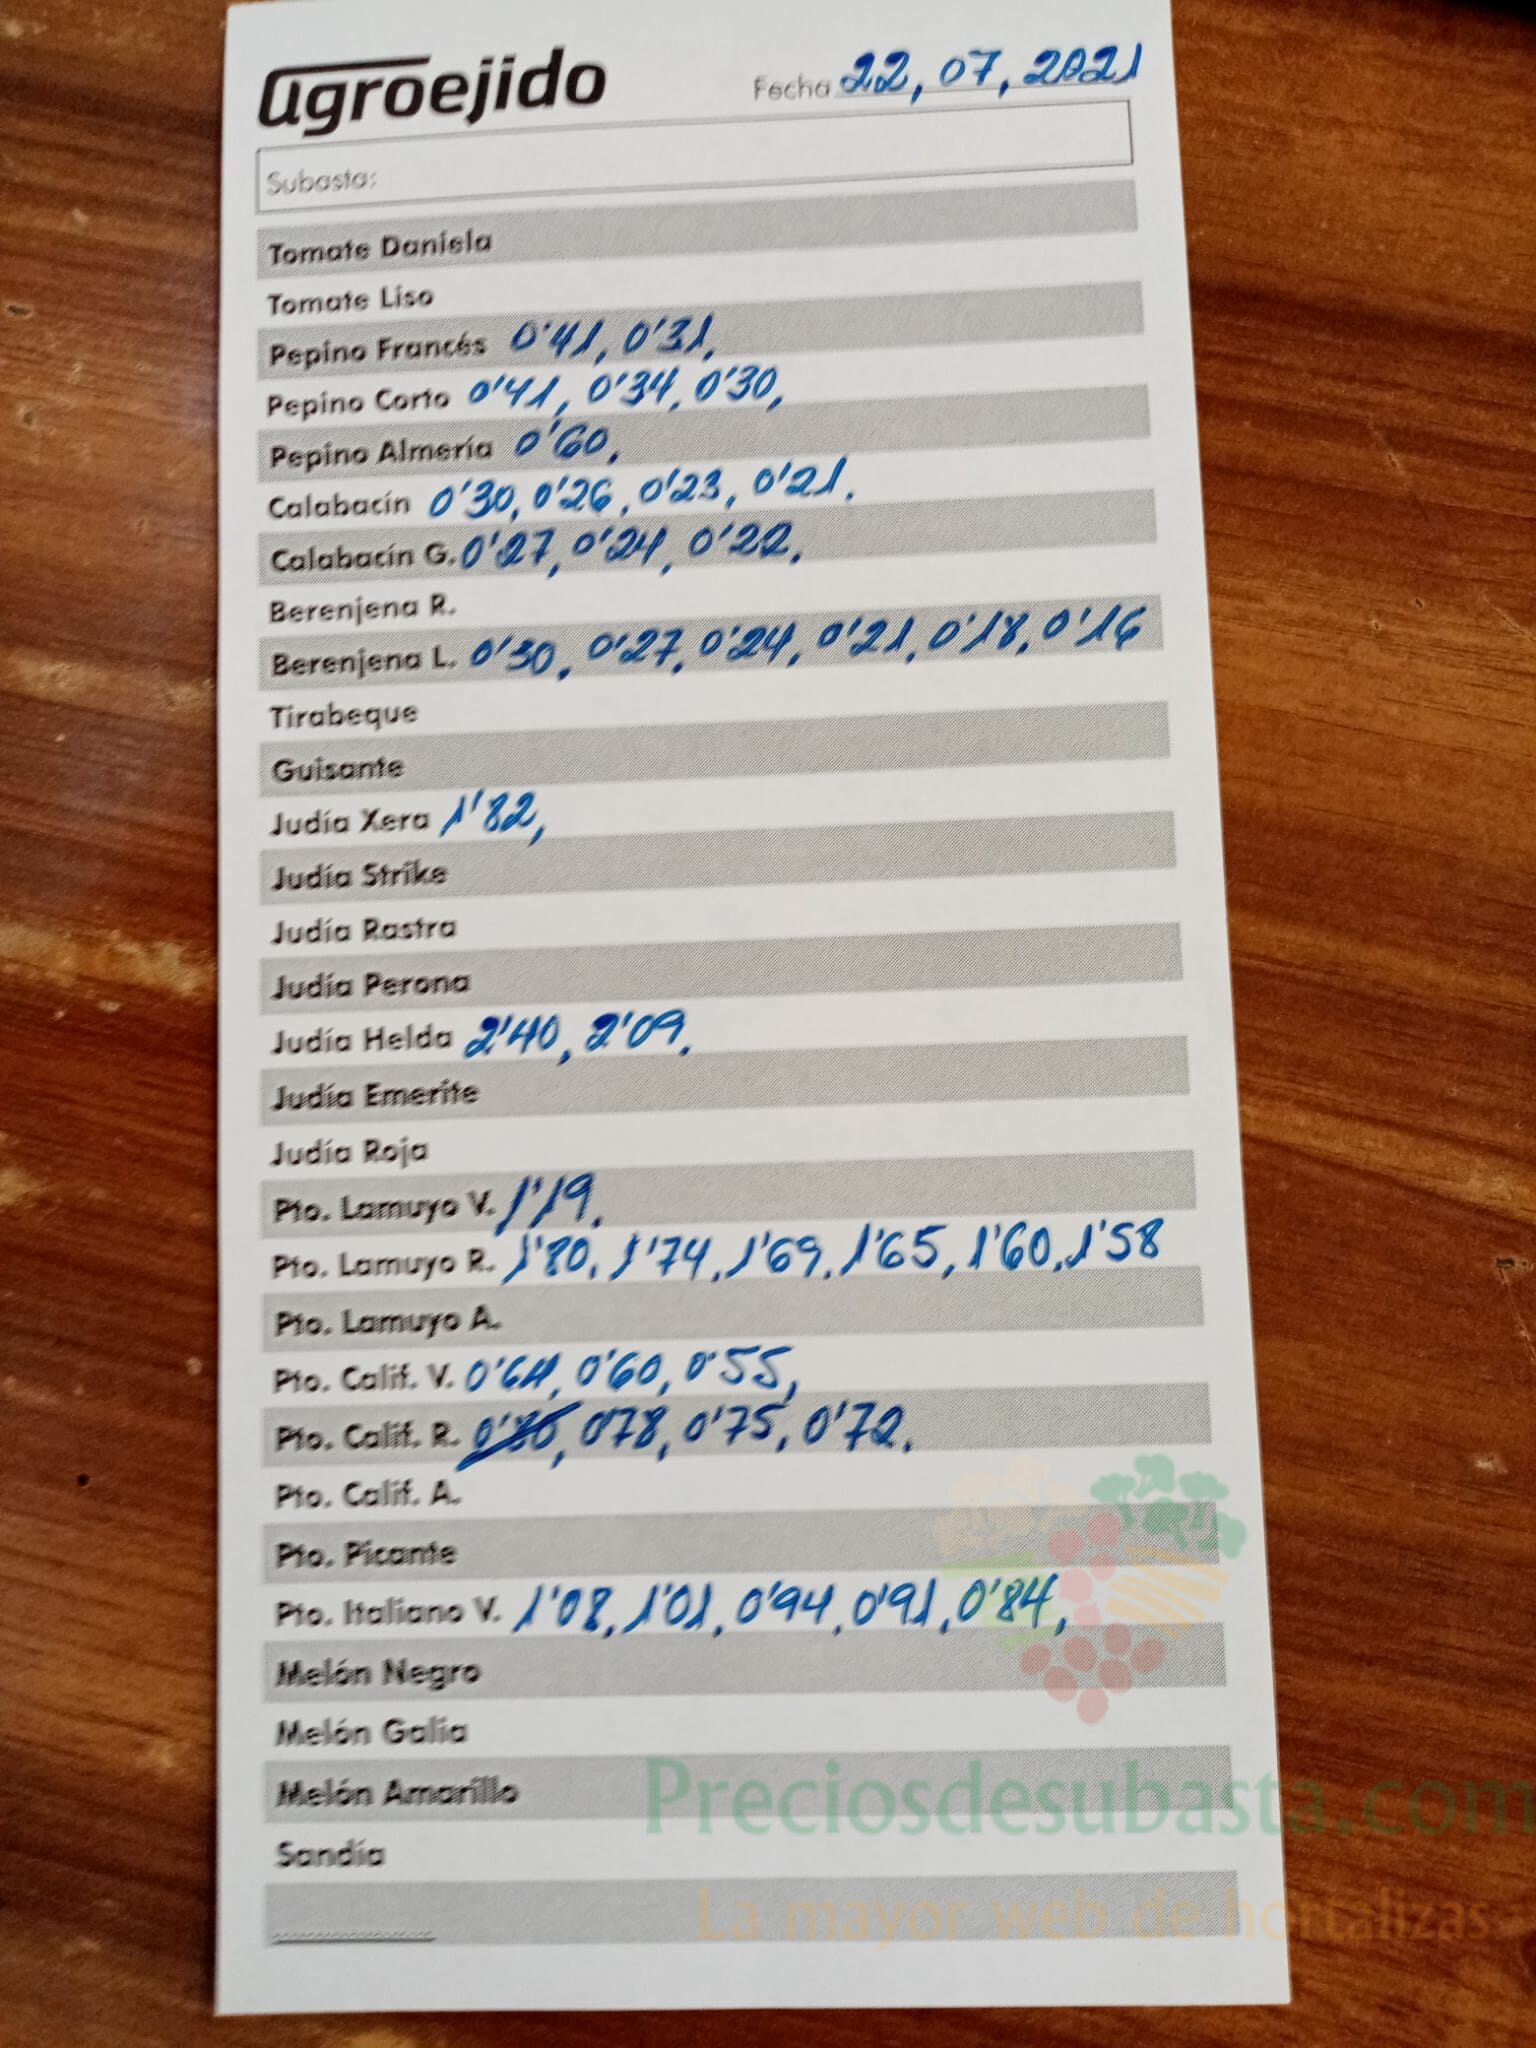 agroejido
Fecha 22, 07, 2021
Subasta:
Tomate Daniela
Tomate Liso
Pepino Francés 0'41, 0'31,
Pepino Corto 0'41, 0'34, 0'30,
Pepino Almería 0'60,
Calabacín 0'30, 0'26, 0'23, 0'21,
Calabacín G. 0'27, 0'24, 0'22,
Berenjena R.
Berenjena L. 0'30, 0'27, 0'24, 0'21, 0'18, 0'16
Tirabeque
Guisante
Judía Xera 1'82,
Judía Strike
Judía Rastra
Judía Perona
Judía Helda 2'40, 2'09,
Judía Emerite
Judía Roja
Pto. Lamuyo V. 1'19,
Pto. Lamuyo R. 1'80, 1'74, 1'69, 1'65, 1'60, 1'58
Pto. Lamuyo A.
Pto. Calif. V. 0'64, 0'60, 0'55,
Pto. Calif. R. 0'78, 0'75, 0'72,
Pto. Calif. A.
Pto. Picante
Pto. Italiano V. 1'08, 1'01, 0'94, 0'91, 0'84,
Melón Negro
Melón Galia
Melón Amarillo
Preciosdesubasta.com
Sandía
La mayor web de hortalizas